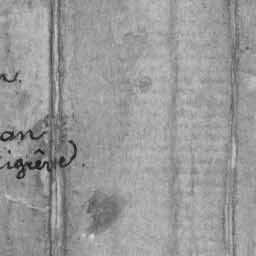 n.
an
igrève).